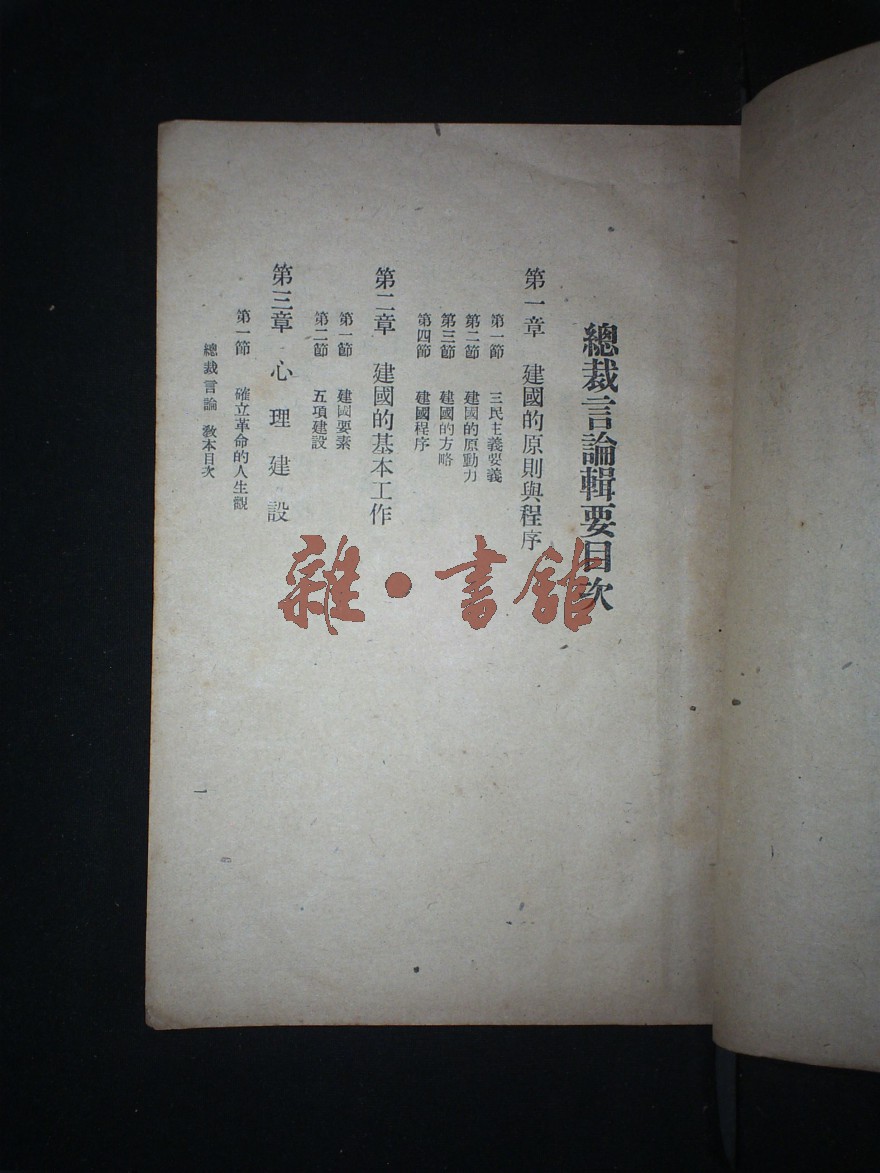 總裁言論輯要目次
第一章　建國的原則與程序
第一節　三民主義要義
第二節　建國的原動力
第三節　建國的方略
第四節　建國程序
第二章　建國的基本工作
第一節　建國要素
第二節　五項建設
第三章　心理建設
第一節　確立革命的人生觀
總裁言論　教本目次
一
雜·書館